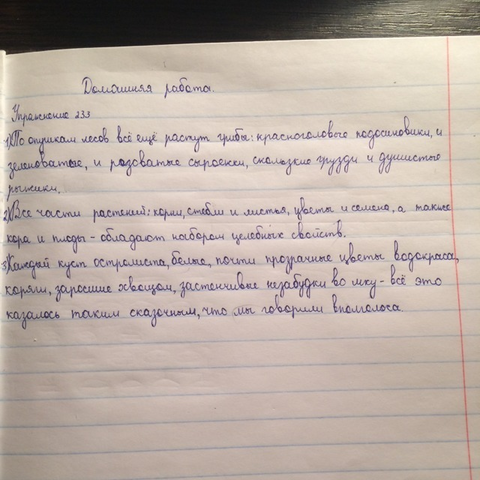 Домашняя работа.
Упражнение 233
1) По опушкам лесов всё ещё растут грибы: красноголовые подосиновики, и
зеленоватые, и розоватые сыроежки, скользкие грузди и душистые
рыжики.
2) Все части растений: корни, стебли и листья, цветы и семена, а также
кора и плоды - обладают набором целебных свойств.
3) Каждый куст остролиста, белые, почти прозрачные цветы водокраса,
коряги, заросшие хвощом, застенчивые незабудки во мху - всё это
казалось таким сказочным, что мы говорили вполголоса.